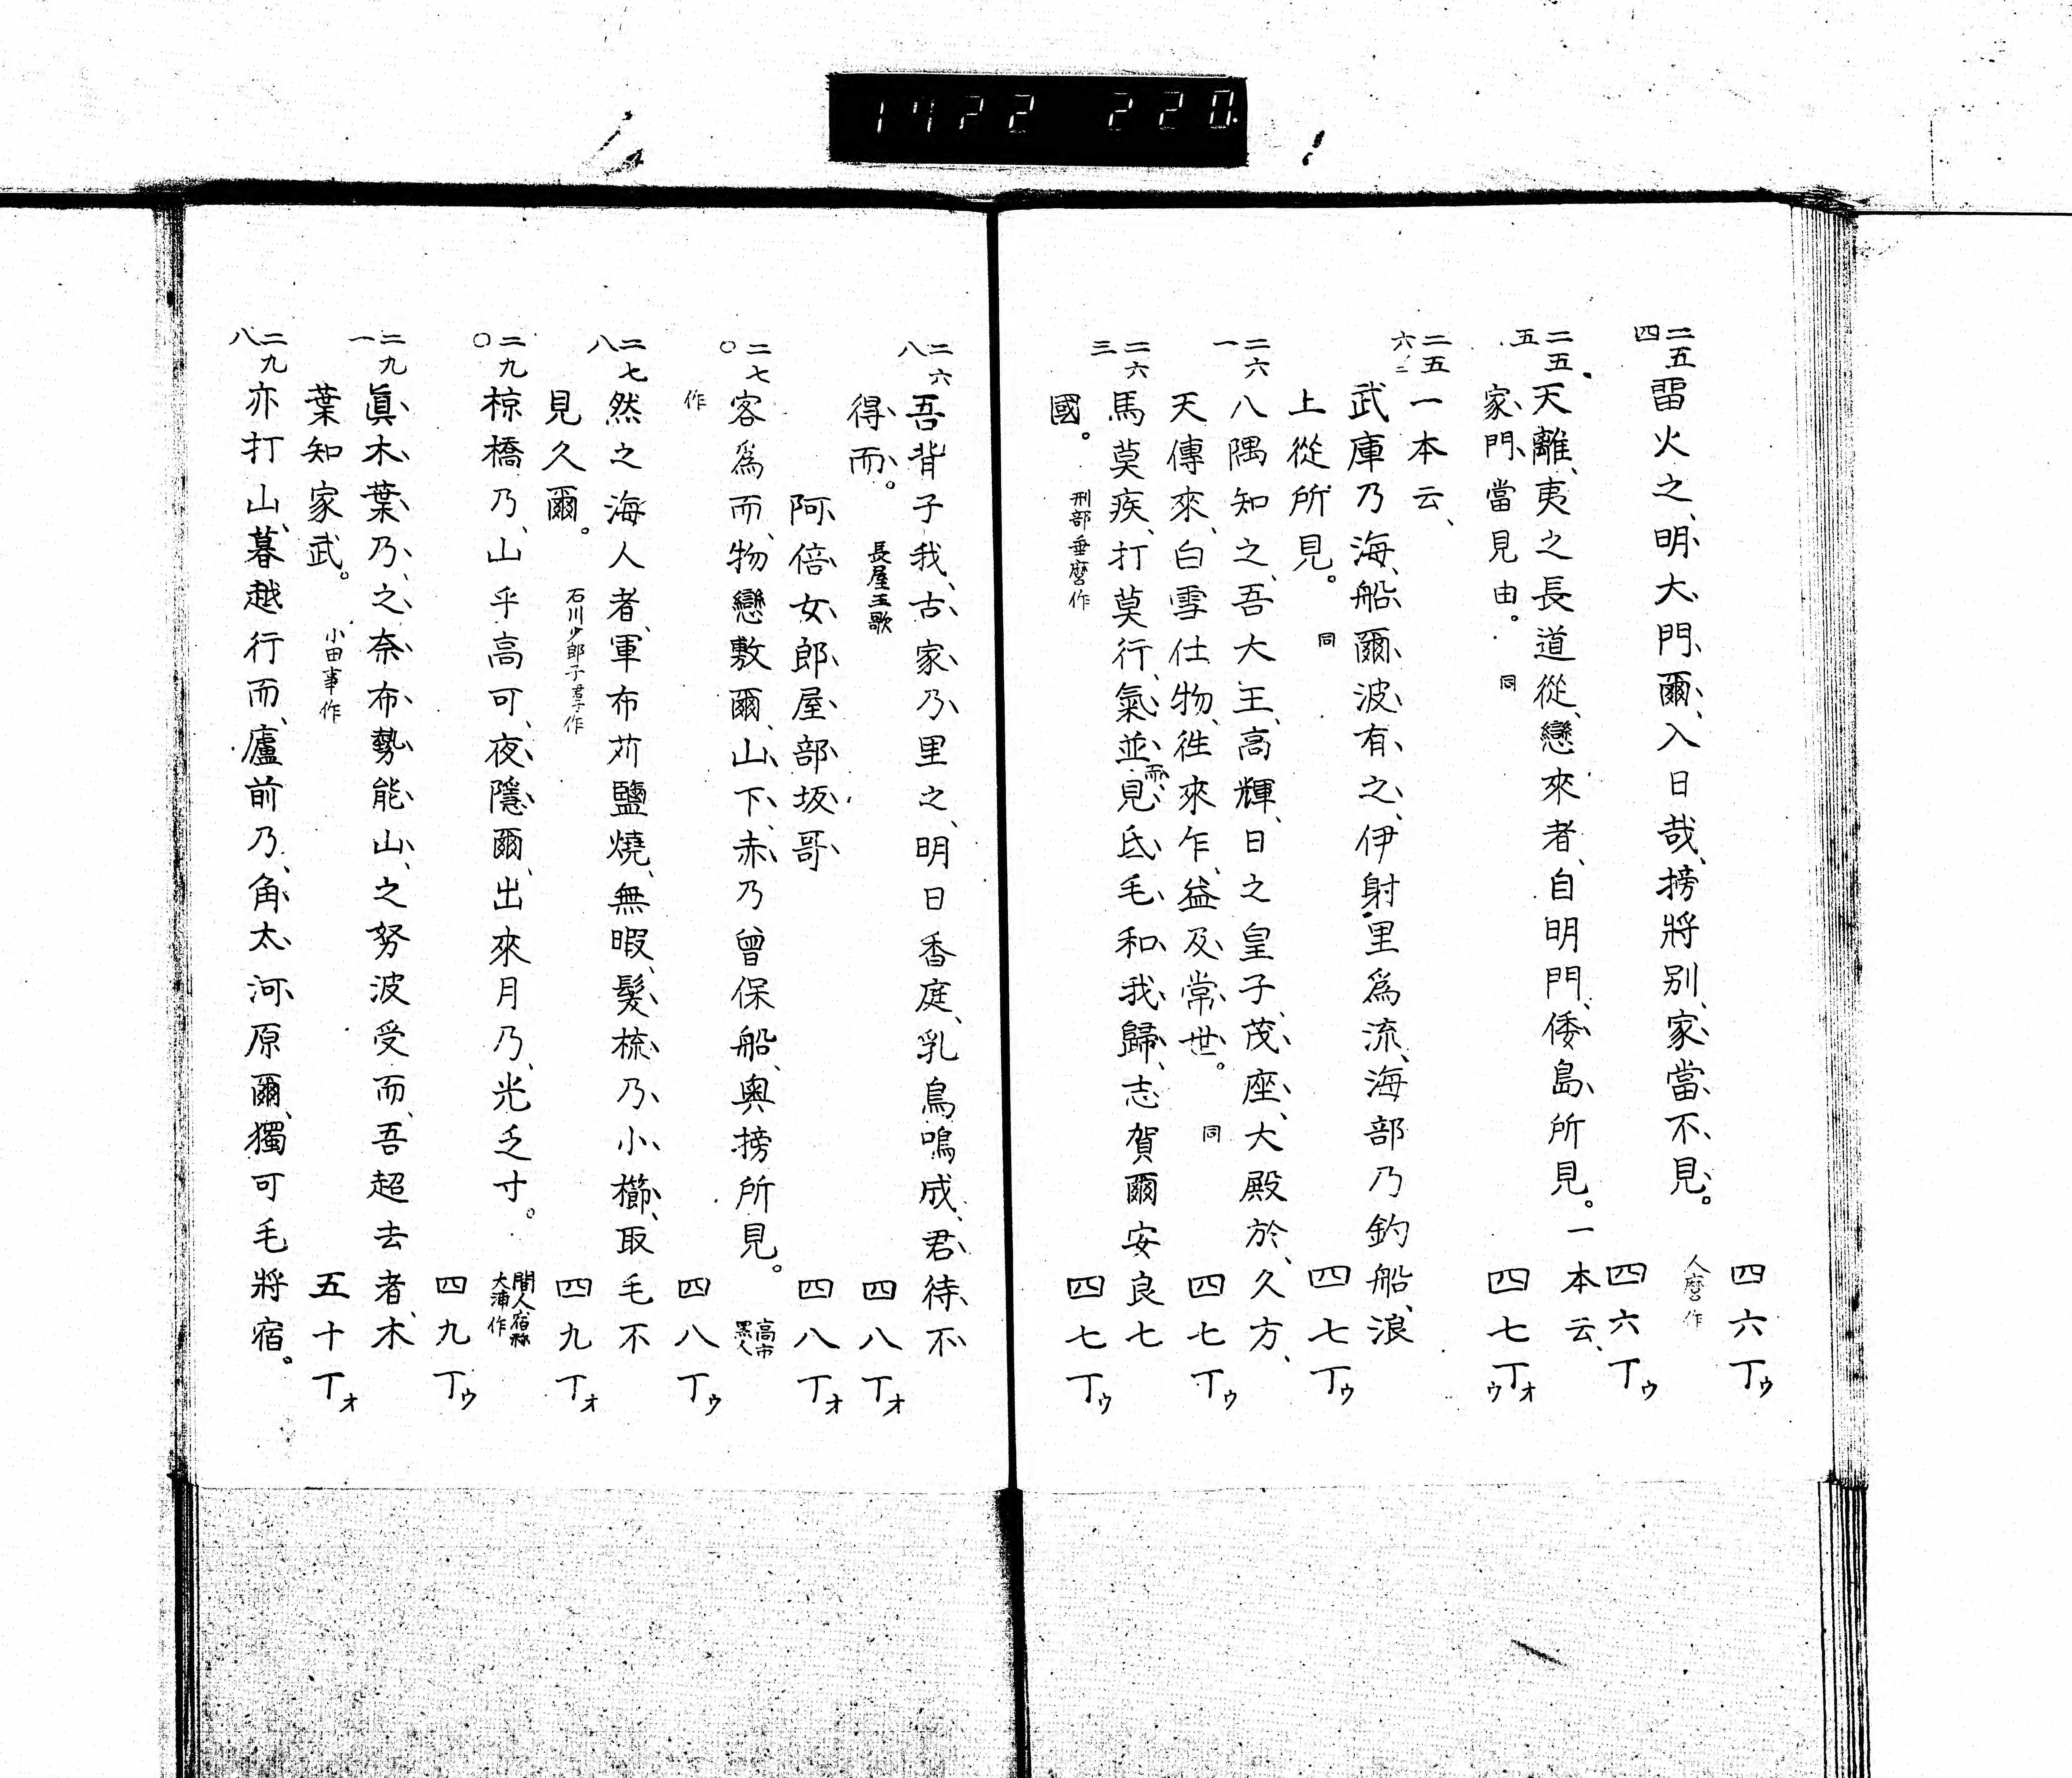 1722 220
四六丁ウ
二五四 雷火之、明大門爾、入日哉、搒將別、家當不見。 人麿作
四六丁ウ
二五五 天離、夷之長道從、戀來者、自明門、倭島所見。一本云、
家門當見由。 同 四七丁オウ
二五六 一本云、
武庫乃海、船爾波有之、伊射里為流、海部乃釣船、浪
上從所見。 同 四七丁ウ
二六一 八隅知之、吾大王、高輝、日之皇子、茂座、大殿於、久方、
天傳來、白雪仕物、徃來乍、益及常世。 同 四七丁ウ
二六三 馬莫疾、打莫行、氣並而見氐毛和我歸、志賀爾安良七
國。 刑部垂麿作 四七丁ウ
二六八 吾背子我、古家乃里之、明日香庭、乳鳥鳴成、君待不
得而。 長屋王歌 四八丁オ
阿倍女郎屋部坂哥 四八丁オ
二七〇 客為而、物戀敷爾、山下、赤乃曾保船、奧搒所見。 高市黒人
作 四八丁ウ
二七八 然之海人者、軍布苅鹽燒、無暇、髮梳乃小櫛、取毛不
見久爾。 石川少郎子君子作 四九丁オ
二九〇 椋橋乃、山乎高可、夜隱爾、出來月乃、光乏寸。 間人宿祢大浦作
四九丁ウ
二九一 眞木葉乃、之奈布勢能山、之努波受而、吾超去者、木
葉知家武。 小田事作 五十丁オ
二九八 亦打山、暮越行而、廬前乃、角太河原爾、獨可毛將宿。